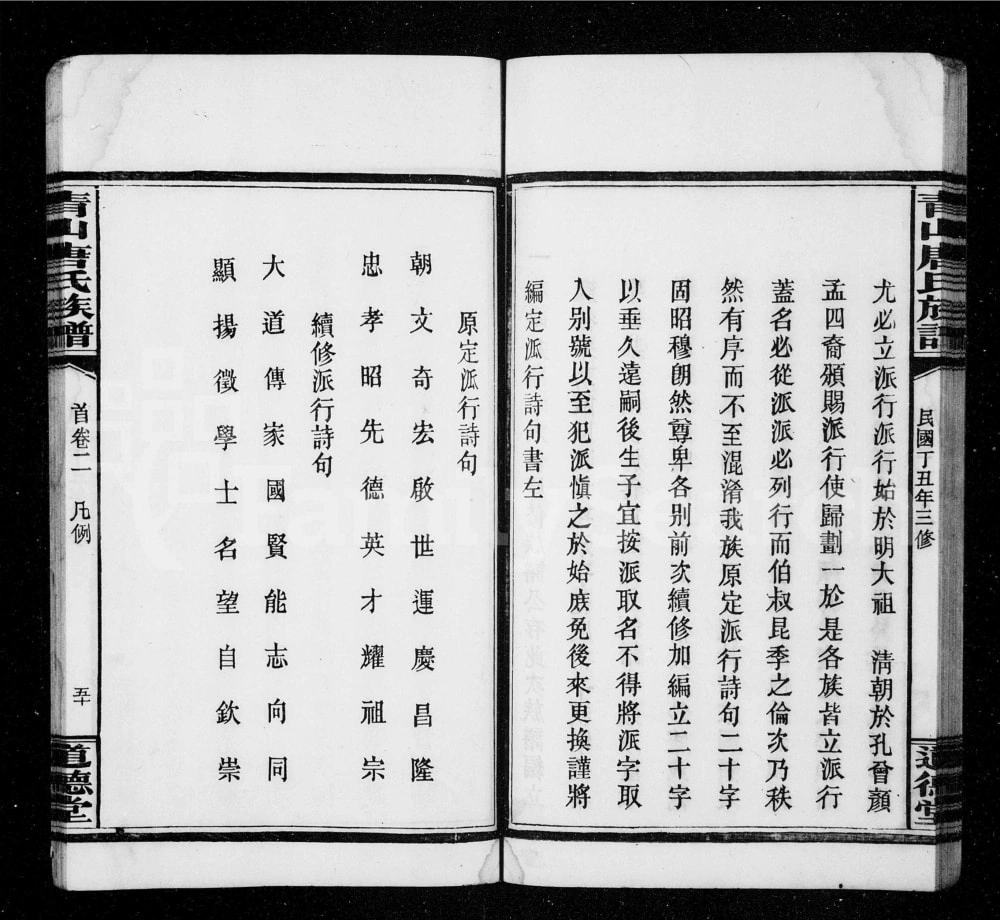 民國丁丑年三修
尤必立派行派行始於明大祖 清朝於孔曾顏
孟四裔頒賜派行使歸劃一於是各族皆立派行
蓋名必從派派必列行而伯叔昆季之倫次乃秩
然有序而不至混淆我族原定派行詩句二十字
固昭穆朗然尊卑各別前次續修加編立二十字
以垂久遠嗣後生子宜按派取名不得將派字取
入別號以至犯派愼之於始庶免後來更換謹將
編定派行詩句書左
原定派行詩句
朝文奇宏啟世運慶昌隆
忠孝昭先德英才耀祖宗
續修派行詩句
大道傳家國賢能志向同
顯揚徵學士名望自欽崇
青山唐氏族譜
首卷二 凡例
五十
道德堂